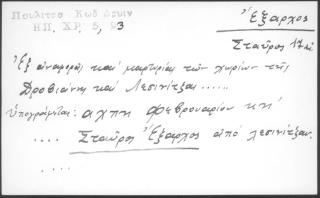 Πουλίτσα Κωδ
ΗΠ. ΧΡ. 5, 93
Ἔξαρχος
Σταῦρος 17 αἰ
Ἐξ ἀναφορᾶς καὶ μαρτυρίας τῶν χωρίων τῆς
Δροβιάνης καὶ Λεσινίτζας......
ὑπογράφεται: αχπη φεβρουαρίου κη'
.... Σταῦρος Ἔξαρχος ἀπὸ λεσινίτζαν.
....